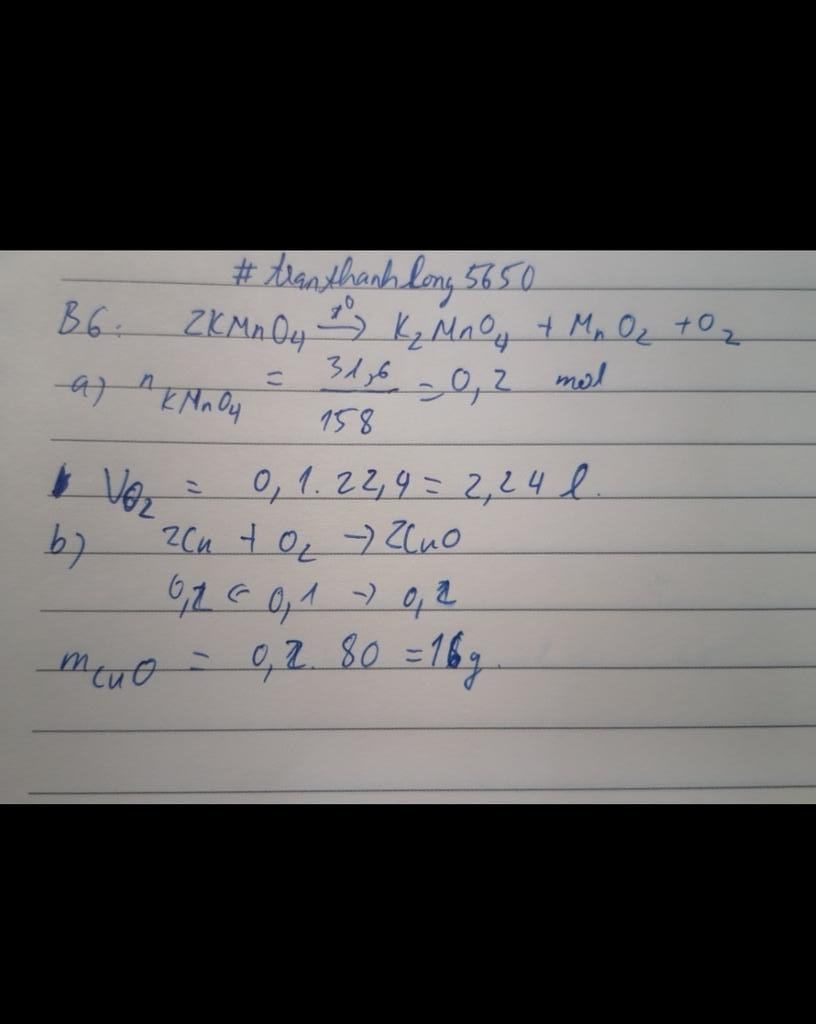 # tranthanhlong5650
B6: 2KMnO₄ →t⁰ K₂MnO₄ + MnO₂ + O₂
a) n KMnO₄ = 31,6 / 158 = 0,2 mol
VO₂ = 0,1.22,4 = 2,24 l.
b) 2Cu + O₂ → 2CuO
0,2 ← 0,1 → 0,2
mCuO = 0,2. 80 = 16g.